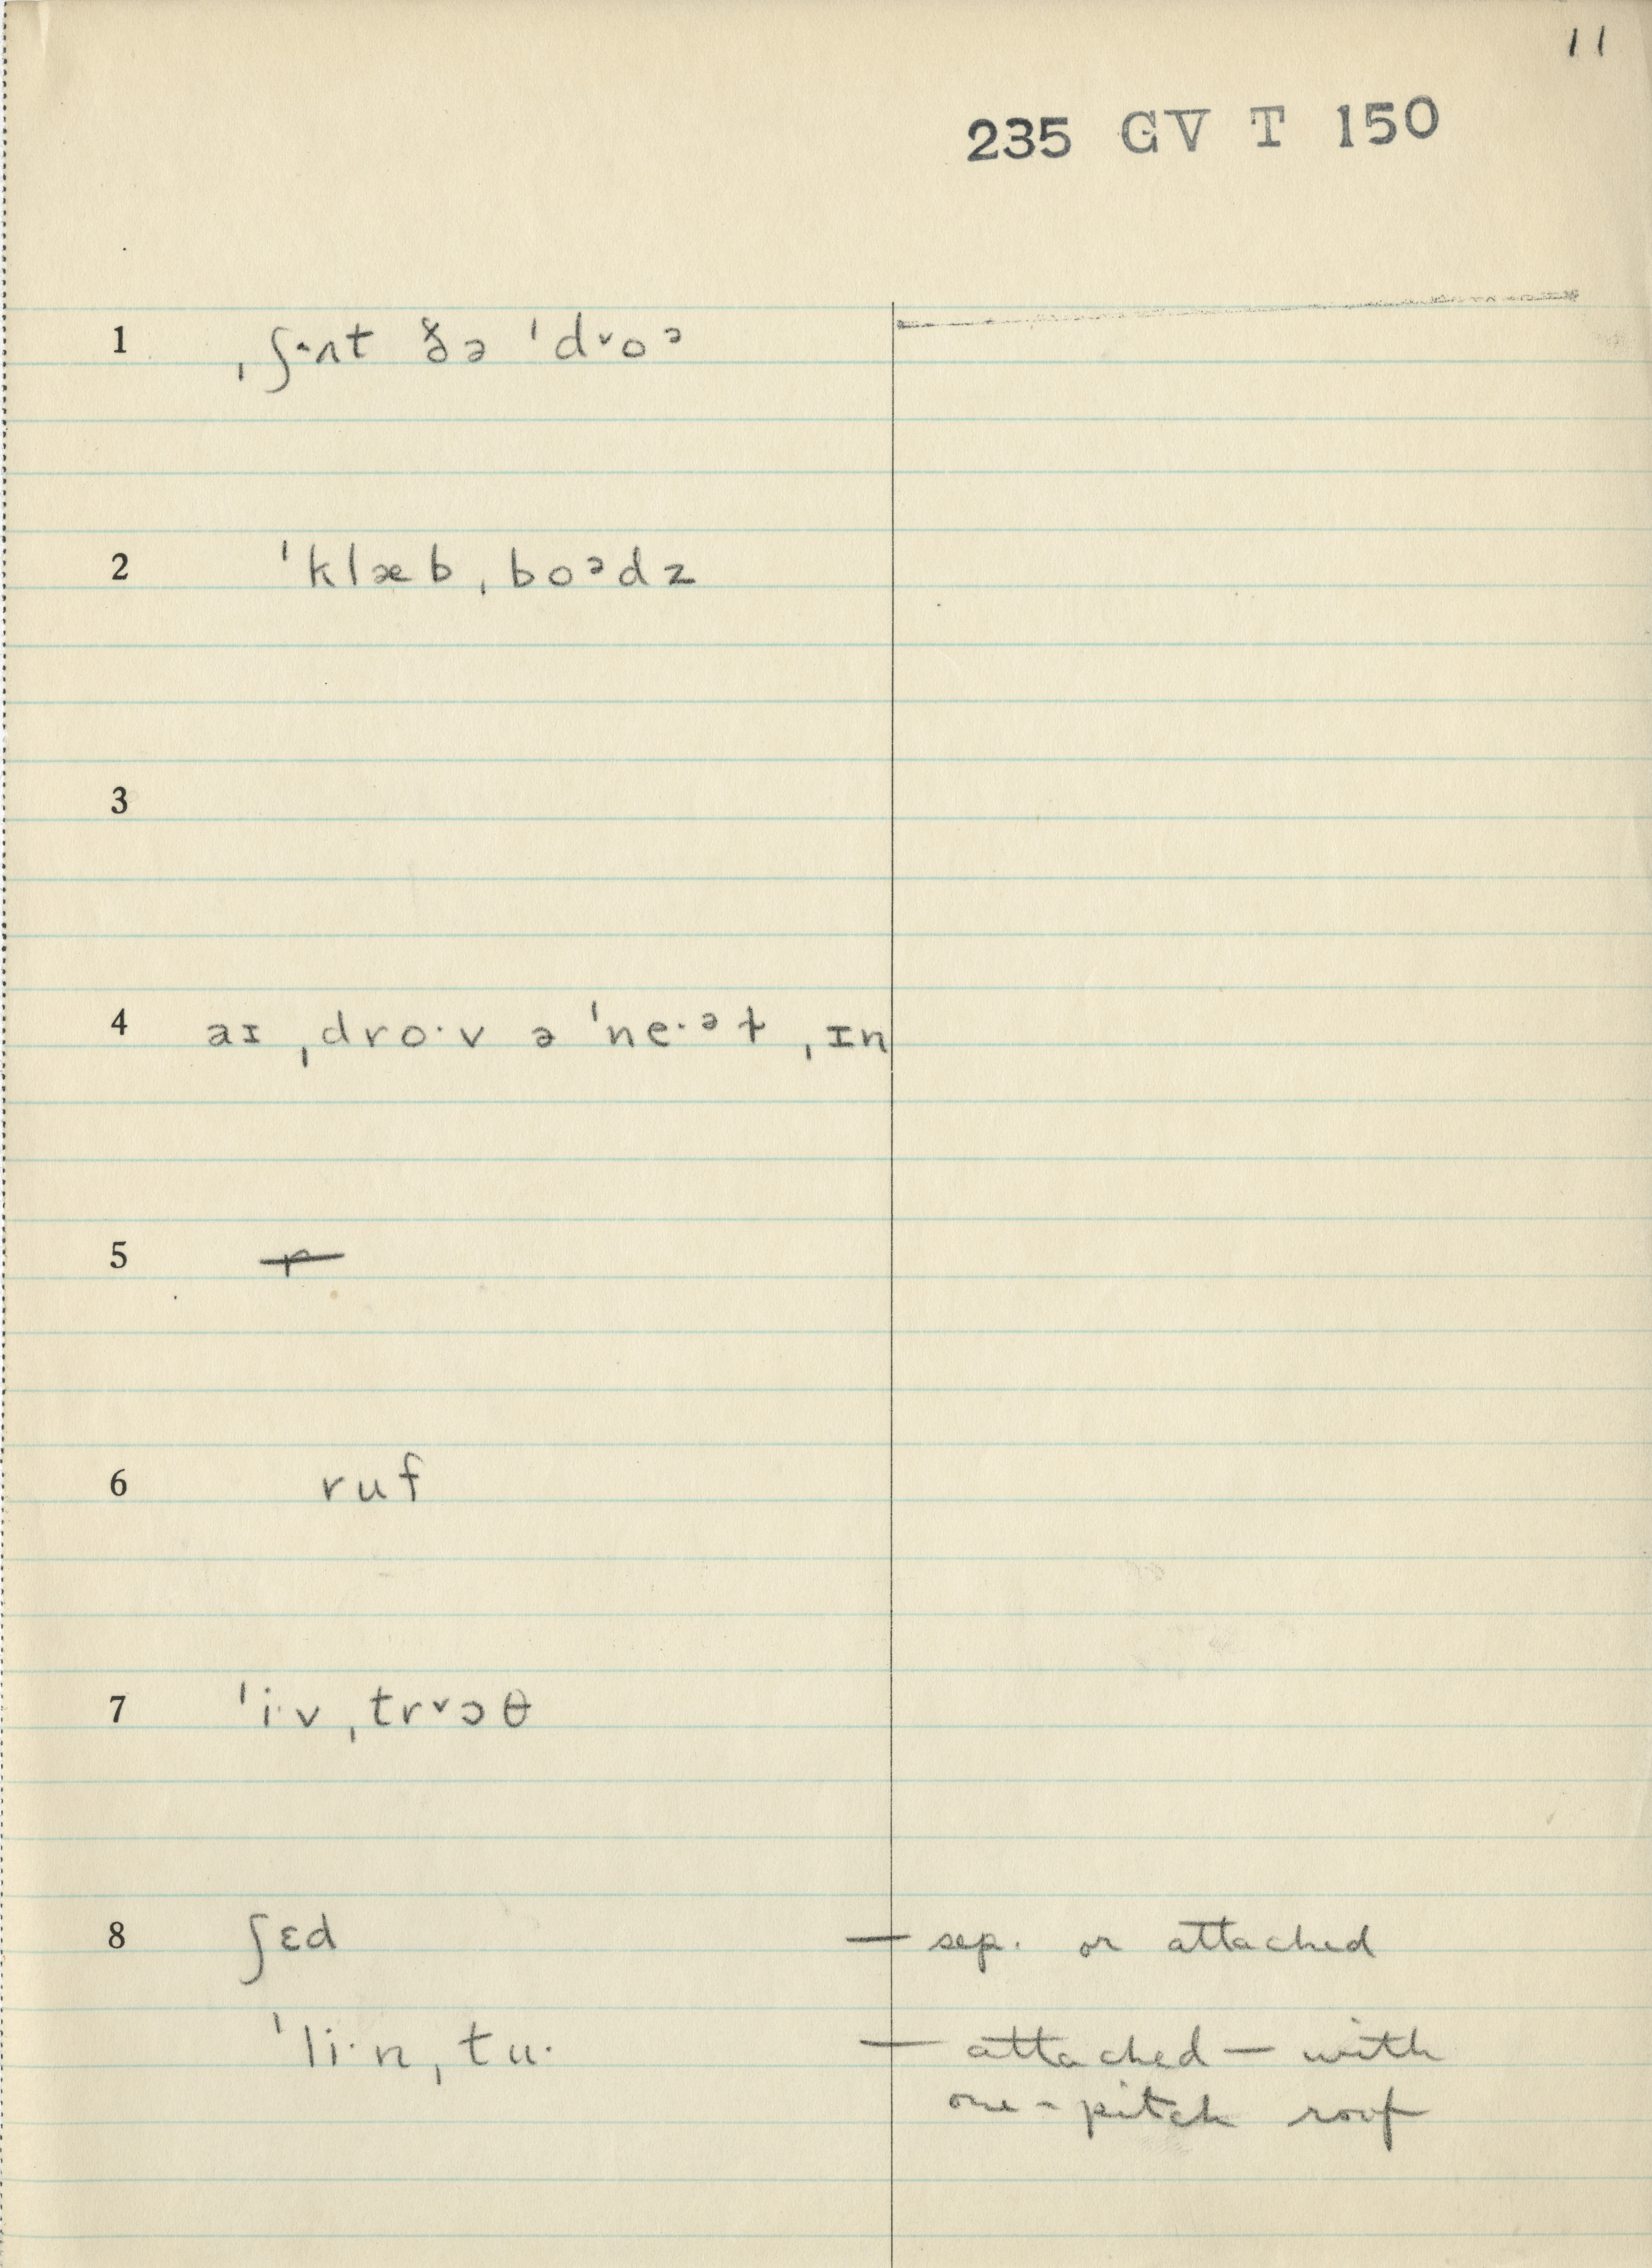 11
235 GV T 150
1 ˌʃɐnt ðə ˈdˇoᵊ
2 ˈklæbˌboᵊdz
3
4 aɪ ˌdro·v ə ˈne·ᵊɫ ˌɪn
5
6 ruf
7 ˈi·vˌtrˇɔθ
8 ʃɛd — sep. or attached
ˈli·nˌtu· — attached — with
one-pitch roof